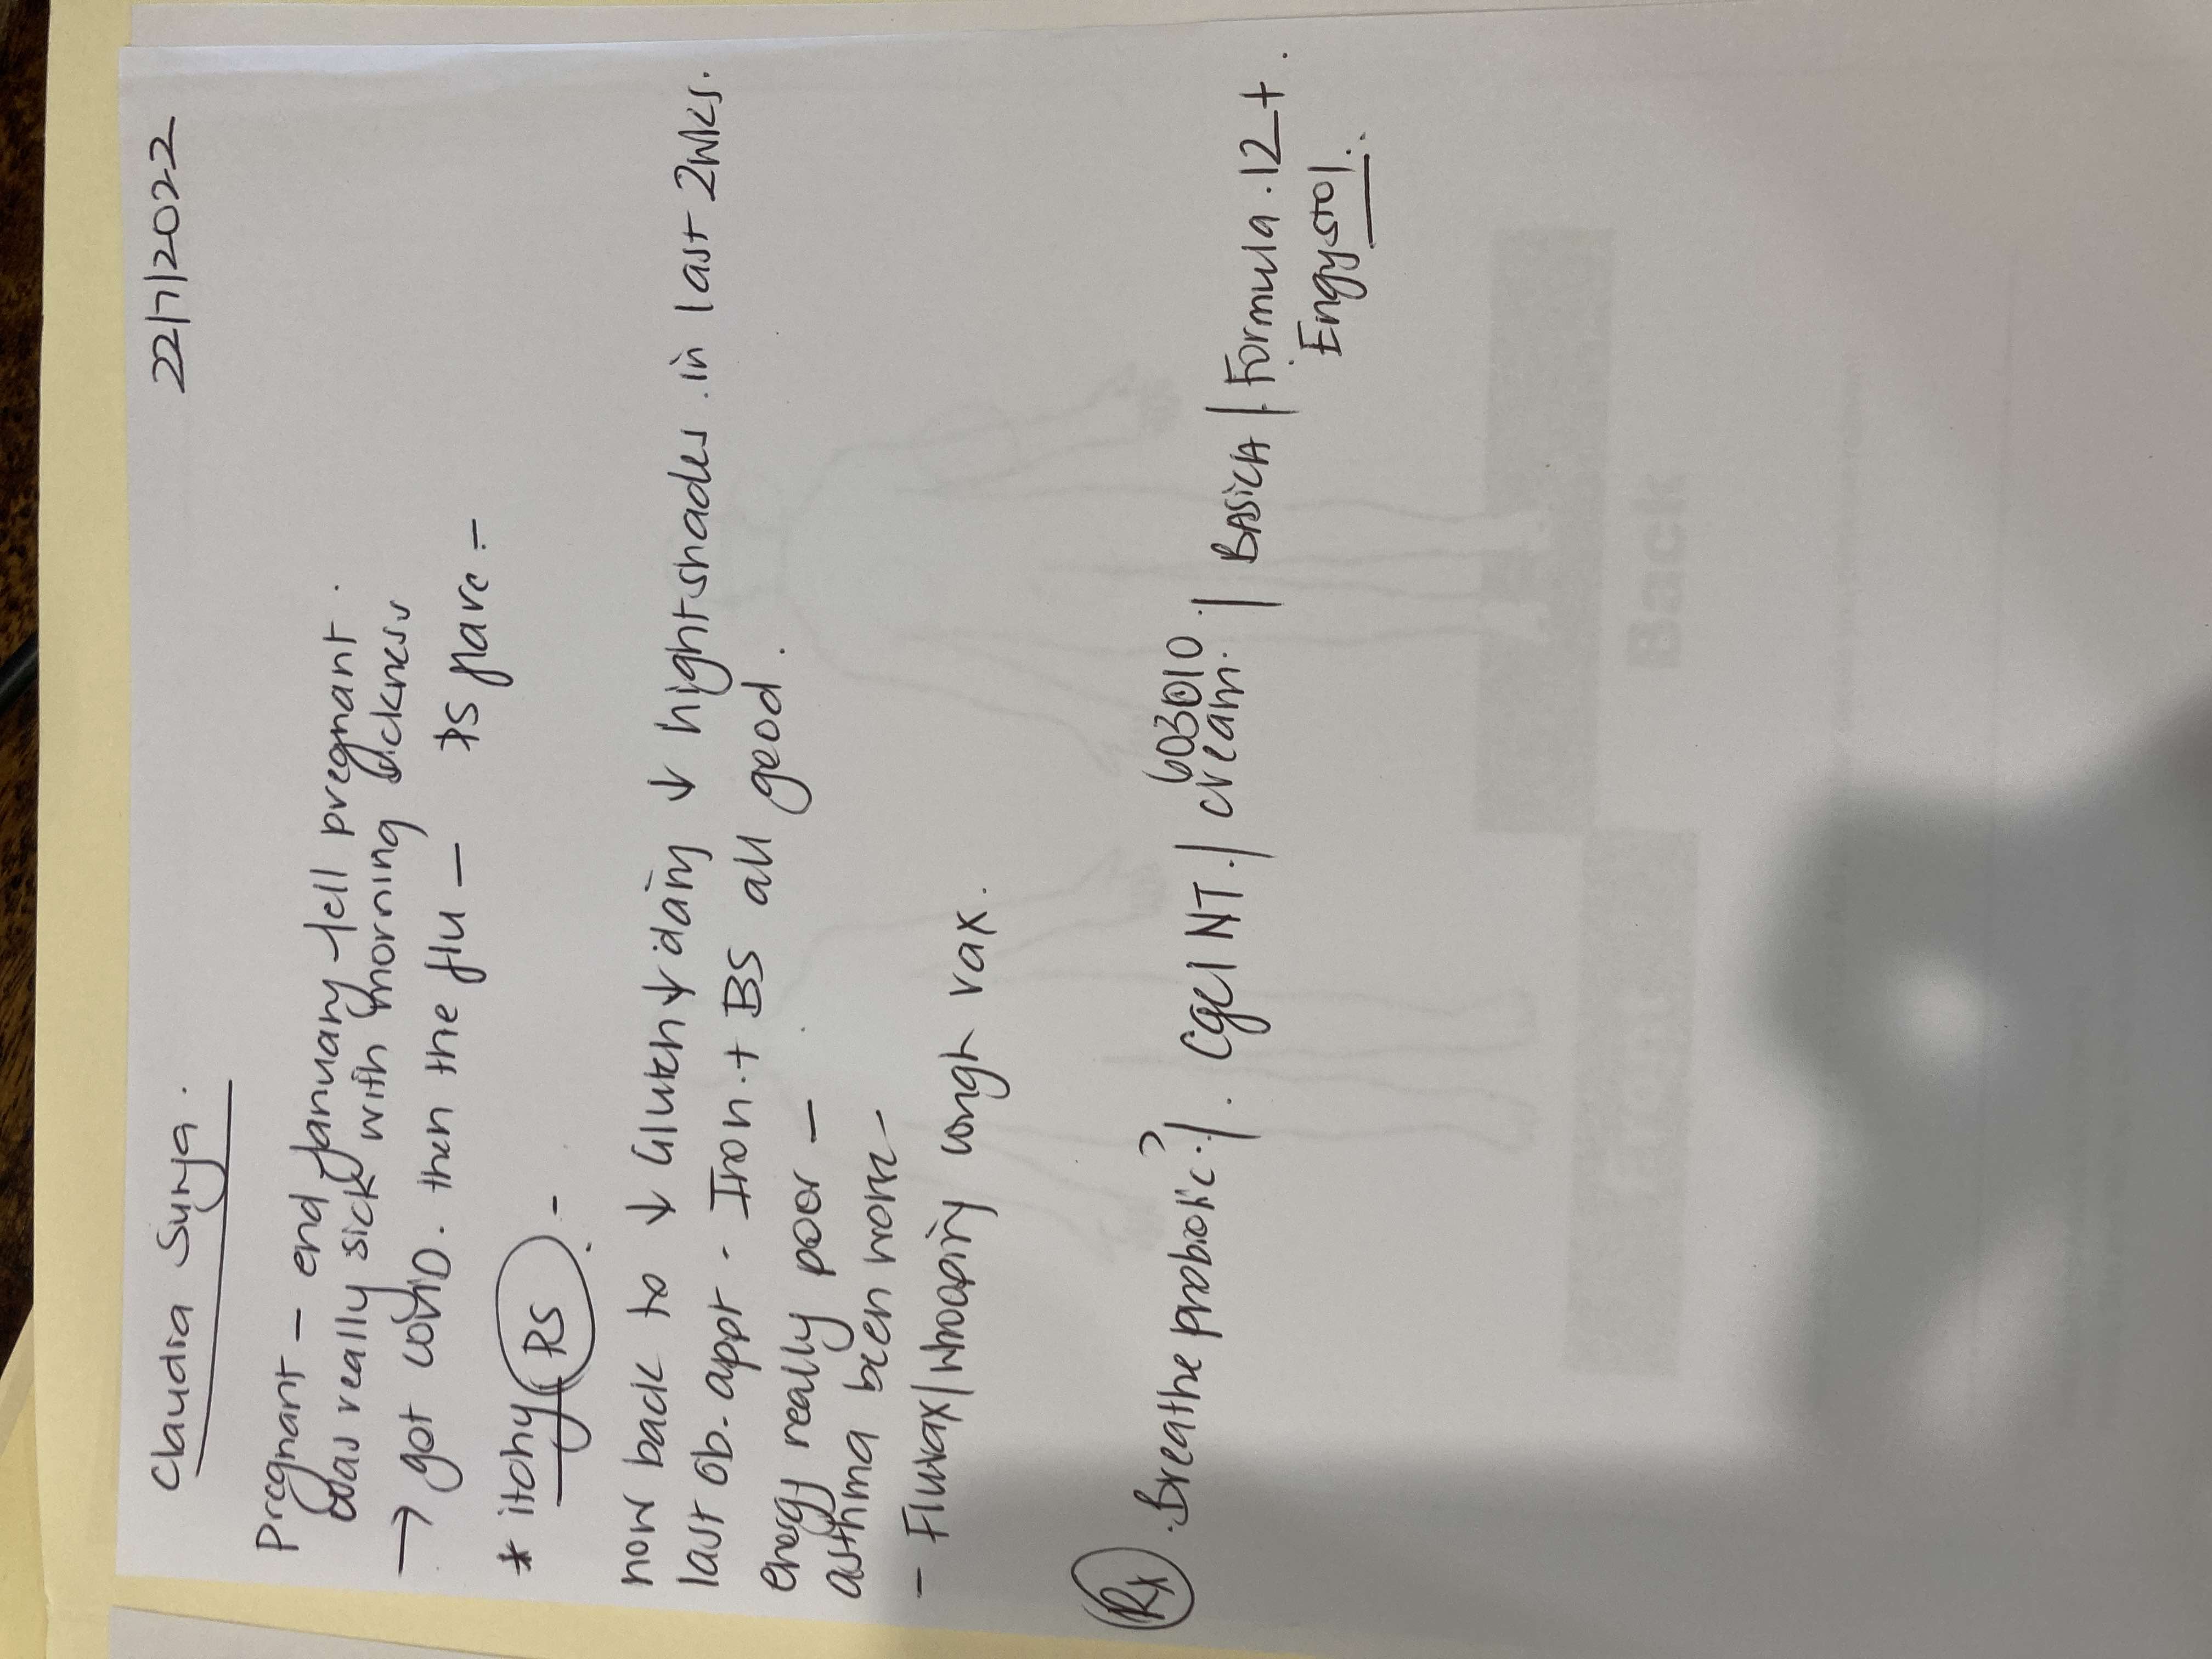 Claudia Surya. 22/7/2022
Pregnant - end January fell pregnant.
was really sick with morning sickness
→ got COVID. then the flu - *S flare -
* itchy PS -
now back to ↓ Gluten ↓ dairy ↓ nightshades in last 2wks.
last ob. appt - Iron + BS all good.
energy really poor -
asthma been worse -
- Fluvax/whooping cough vax.
Rx Breathe probiotic? / NT. / cream. 603010 / BASICA / Formula 12 +
Engystol.
Back